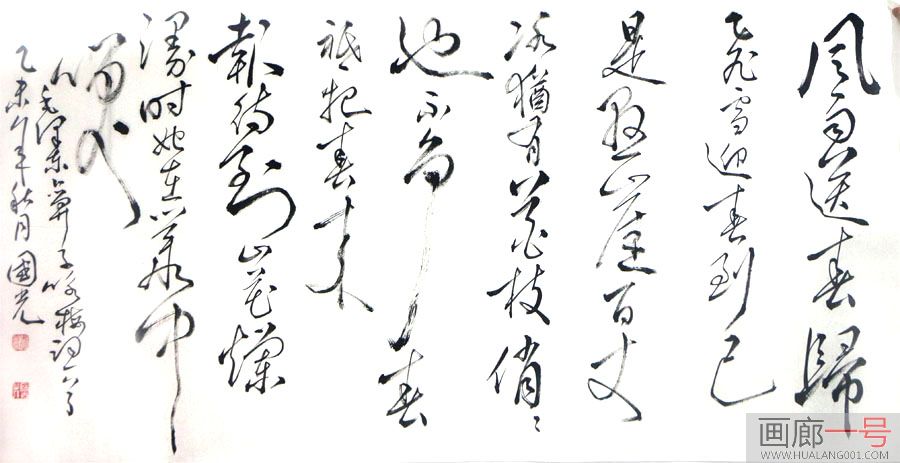 风雨送春歸
飞雪迎春到已
是悬崖百丈
冰猶有花枝俏〻
也不争春
祗把春来
報待到山花爛
漫时她在丛中
笑
毛泽东卜算子咏梅词一首
乙未年秋月 國光
画廊一号
WWW.HUALANG001.COM